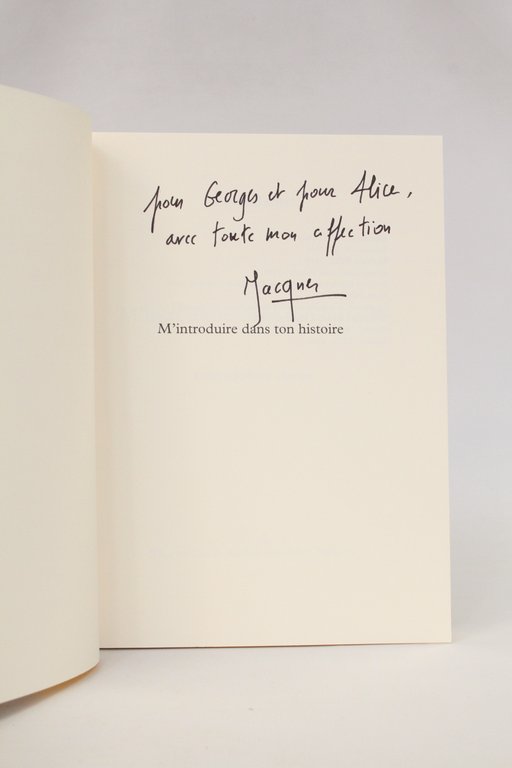 pour Georges et pour Alice,
avec toute mon affection
Jacques
M'introduire dans ton histoire